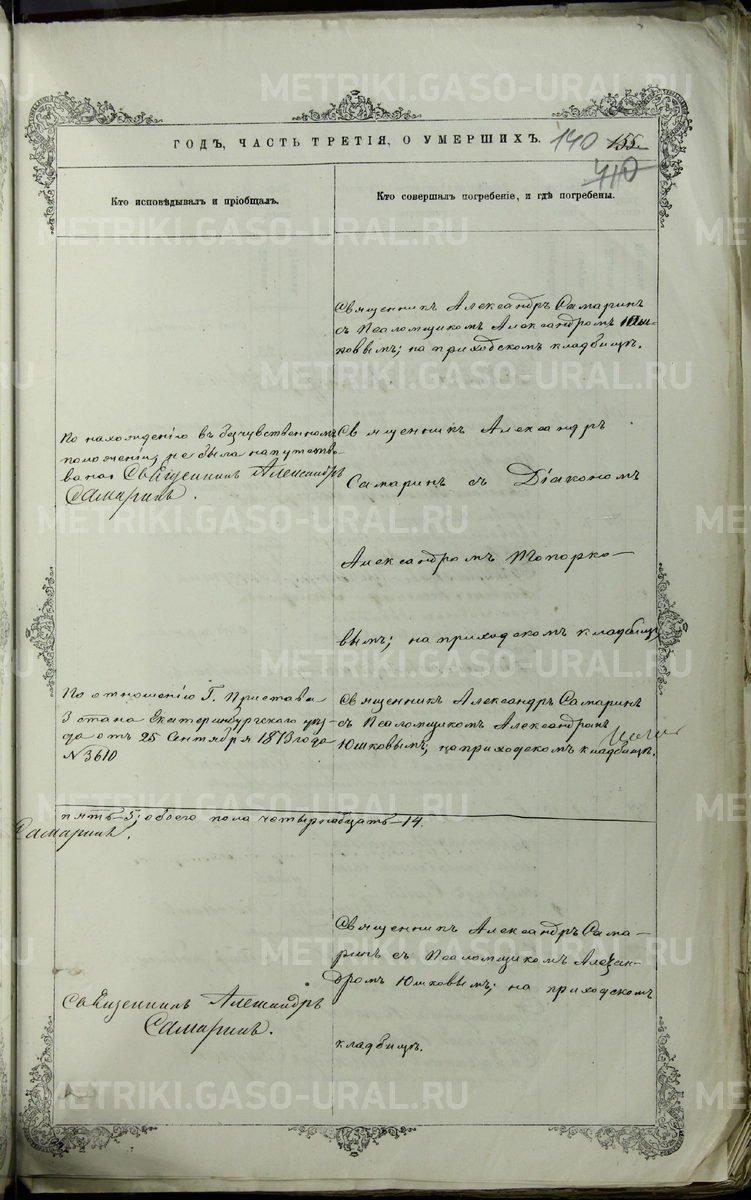 ГОДЪ, ЧАСТЬ ТРЕТІЯ, О УМЕРШИХЪ. 140 155
410
Кто исповѣдывалъ и пріобщалъ.
Кто совершалъ погребеніе, и гдѣ погребены.
Священникъ Александръ Самаринъ
съ Псаломщикомъ Александромъ Юш-
ковымъ; на приходскомъ кладбищѣ.
По нахожденію въ безчувственномъ
положеніи, не была напутство
вана Священникъ Александръ
Самаринъ.
Священникъ Александръ
Самаринъ съ Діакономъ
Александромъ Топорко-
вымъ; на приходскомъ кладбищѣ
По отношенію Г. Пристава
3 стана Екатеринбургскаго уѣз
да отъ 25 Сентября 1873 года
№ 3610
Священникъ Александръ Самаринъ
съ Псаломщикомъ Александромъ
Юшковымъ; на приходскомъ кладбищѣ.
пять-5; обоего пола четырнадцать-14.
Самаринъ.
Священникъ Александръ
Самаринъ.
Священникъ Александръ Сама-
ринъ съ Псаломщикомъ Алексан-
дромъ Юшковымъ; на приходскомъ
кладбищѣ.
METRIKI.GASO-URAL.RU